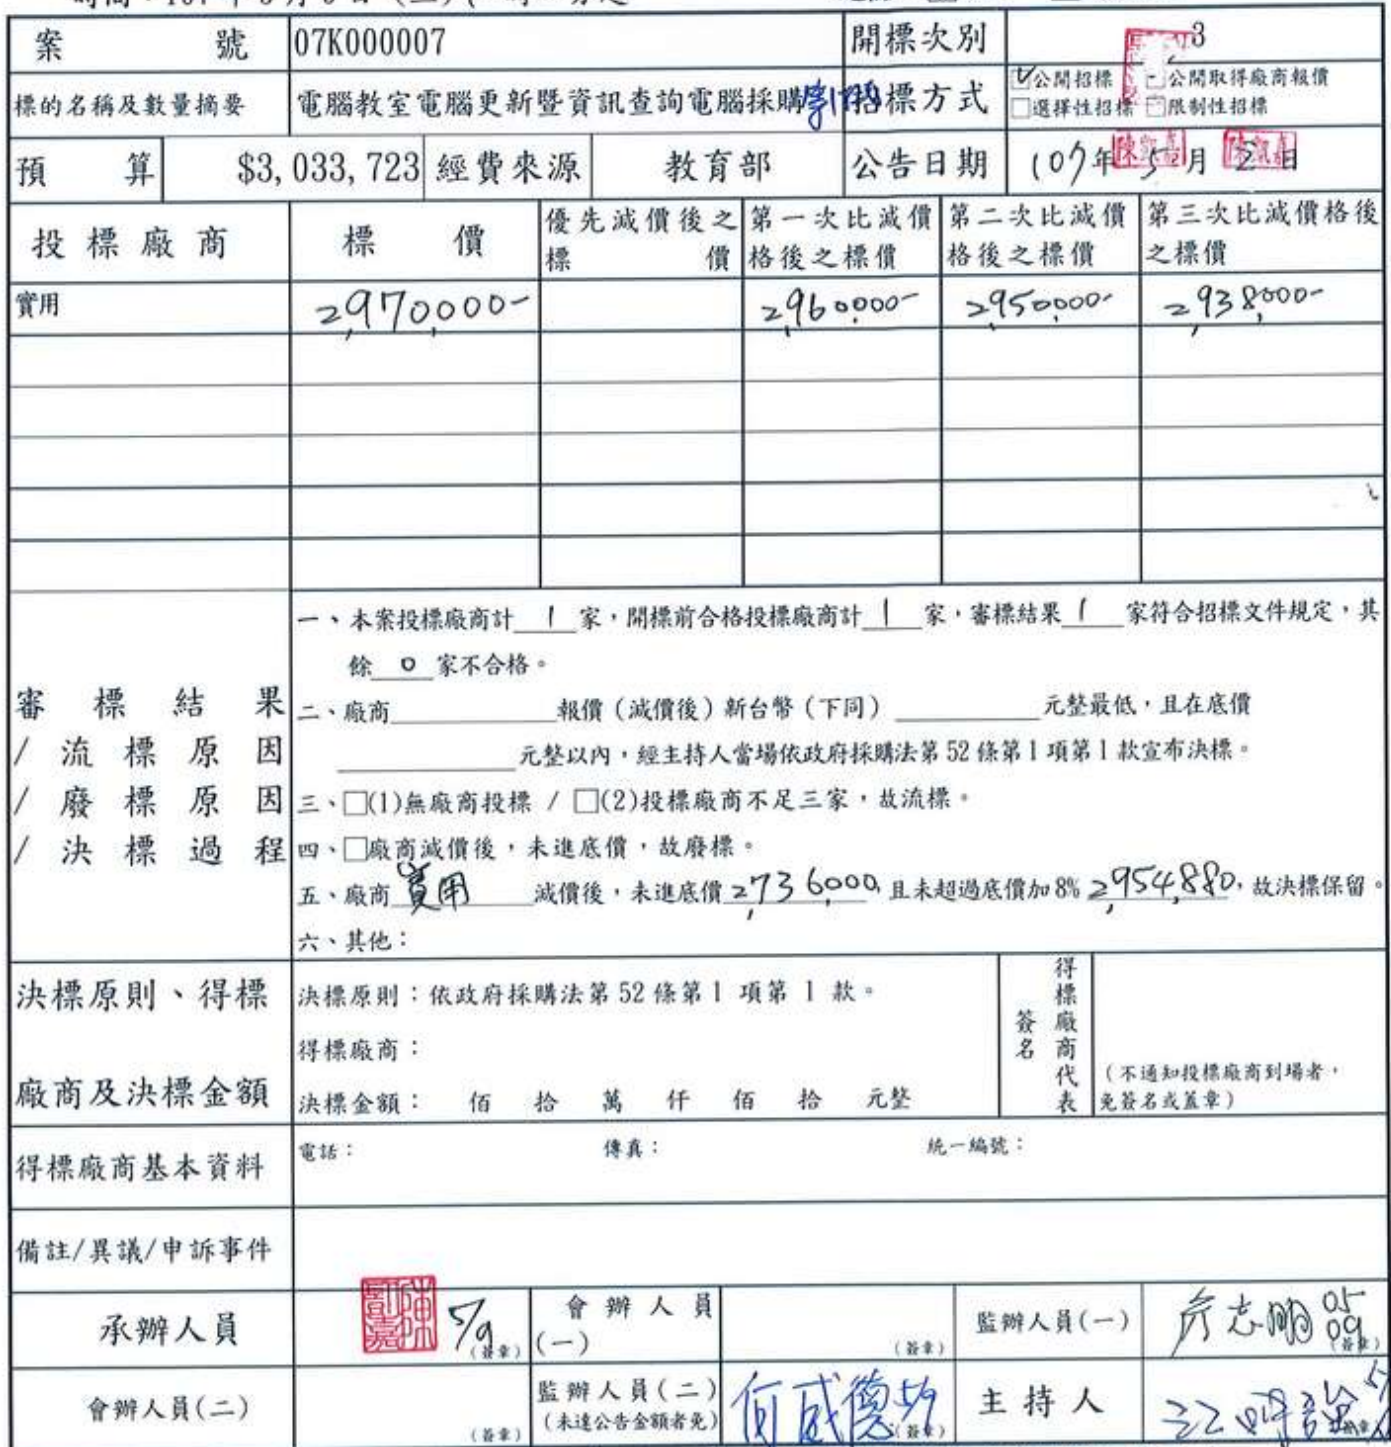 案 號 07K000007 開標次別 3
標的名稱及數量摘要 電腦教室電腦更新暨資訊查詢電腦採購 招標方式 ☑公開招標 公開取得廠商報價
□選擇性招標 □限制性招標
預 算 $3,033,723 經費來源 教育部 公告日期 107年5月2日
投標廠商 標 價 優先減價後之標 價 第一次比減價格後之標價 第二次比減價格後之標價 第三次比減價格後之標價
實用 2,970,000- 2,960,000- 2,950,000- 2,938,000-
審標結果
/流標原因
/廢標原因
/決標過程
一、本案投標廠商計 1 家，開標前合格投標廠商計 1 家，審標結果 1 家符合招標文件規定，其
餘 0 家不合格。
二、廠商 報價（減價後）新台幣（下同） 元整最低，且在底價
元整以內，經主持人當場依政府採購法第52條第1項第1款宣布決標。
三、□(1)無廠商投標 / □(2)投標廠商不足三家，故流標。
四、□廠商減價後，未進底價，故廢標。
五、廠商 實用 減價後，未進底價 2,736,000，且未超過底價加8% 2,954,880，故決標保留。
六、其他：
決標原則、得標
廠商及決標金額
決標原則：依政府採購法第52條第1 項第 1 款。
得標廠商：
決標金額： 佰 拾 萬 仟 佰 拾 元整
得標廠商代表
簽名
（不通知投標廠商到場者，
免簽名或蓋章）
得標廠商基本資料 電話： 傳真： 統一編號：
備註/異議/申訴事件
承辦人員 5/9 (簽章) 會辦人員(一) (簽章) 監辦人員(一) 05 09 (簽章)
會辦人員(二) (簽章) 監辦人員(二) (未達公告金額者免) 何威德 5/9 (簽章) 主持人